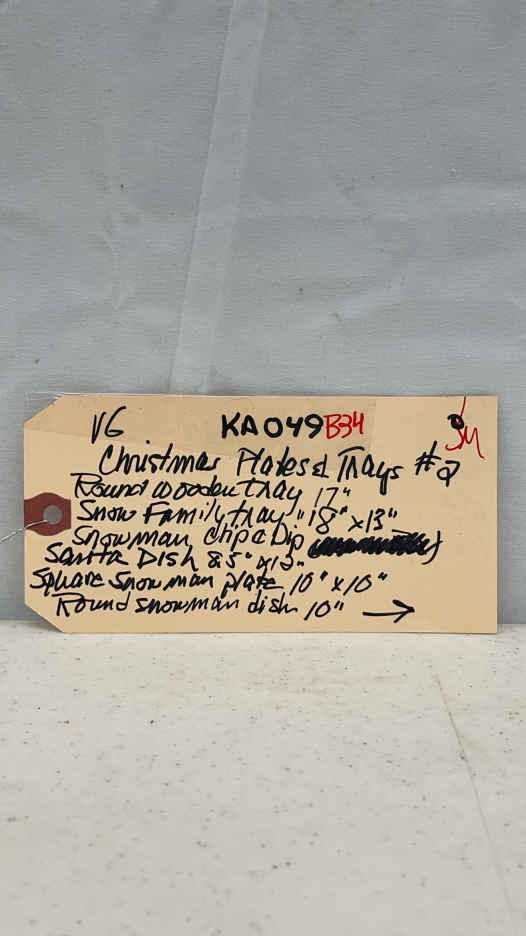 VG KA049 B34 JM
Christmas Plates & Trays #2
Round wooden tray 17"
Snow Family tray "18" x13"
Snowman Chip & Dip
Santa Dish 8.5" x12"
Square snowman plate 10" x 10"
Round snowman dish 10" →